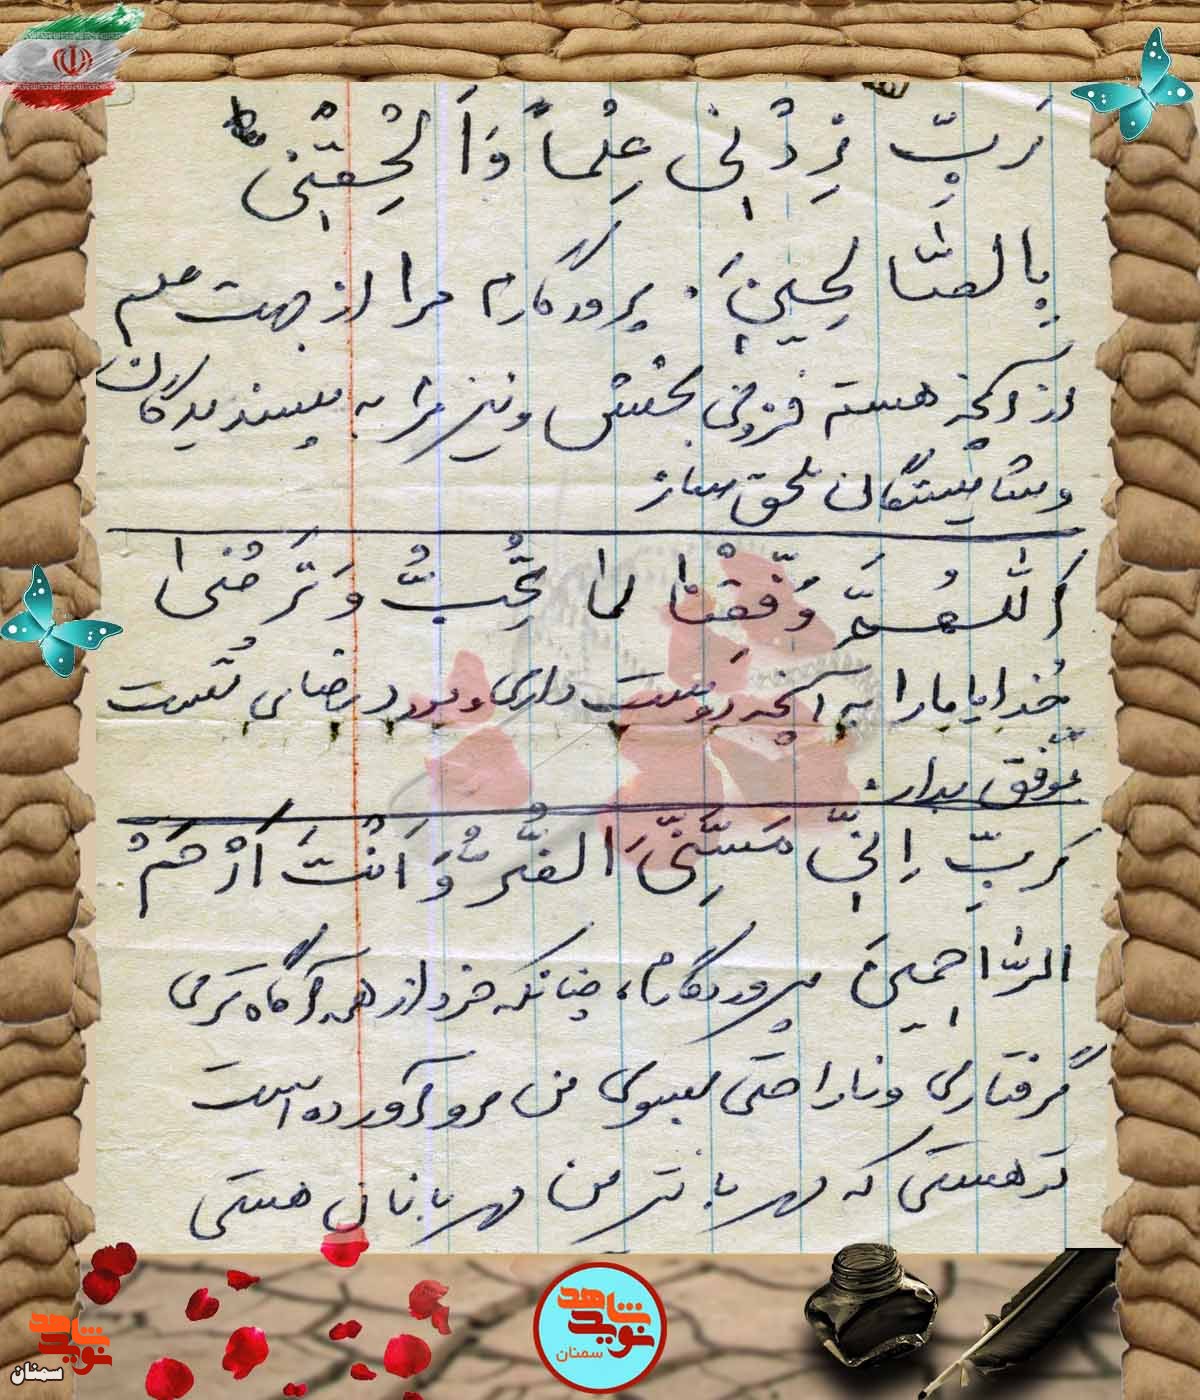 رَبِّ زِدْنِی عِلْماً وَ اَلْحِقْنِی
بِالصّالِحینَ. پروردگارم مرا از جهت علم
از آنچه هست فزونی بخش و نیز مرا به پسندیدگان
و شایستگان ملحق ساز
اَللّهُمَّ وَفِّقْنا لِما تُحِبُّ وَ تَرْضی
خدایا ما را به آنچه دوست داری و مورد رضای تُست
موفّق بدار.
رَبِّ اِنّی مَسَّنِیَ الضُّرُّ وَ اَنْتَ اَرْحَمُ
الرّاحِمینَ پروردگارم، چنانکه خود از همه آگاه‌تری
گرفتاری و ناراحتی بسوی من رو آورده است
تو هستی که مهربانترین مهربانان هستی
نوید شاهد
سمنان
نوید شاهد
سمنان